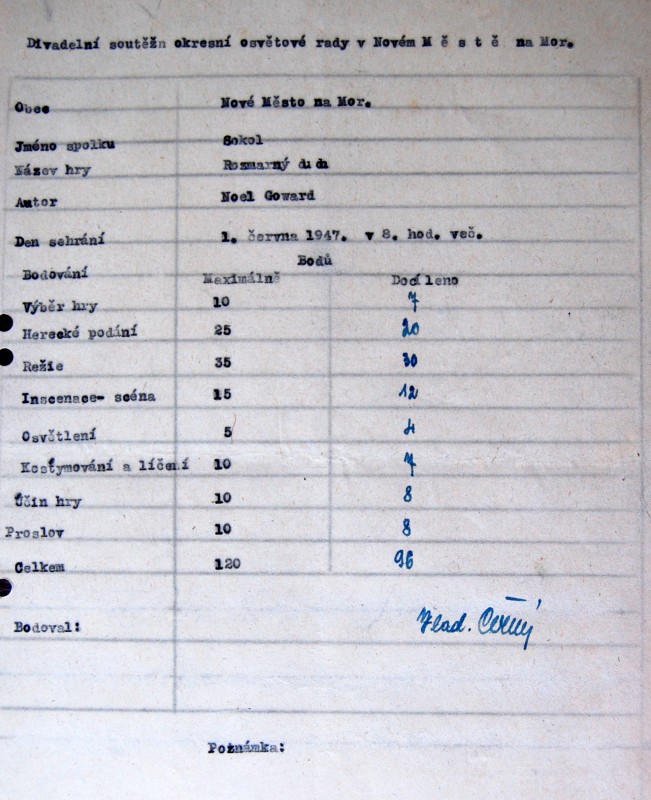 Divadelní soutěžn okresní osvětové rady v Novém M ě s t ě na Mor.
Obec Nové Město na Mor.
Jméno spolku Sokol
Název hry Rozmarný duch
Autor Noel Goward
Den sehrání 1. června 1947. v 8. hod. več.
Bodů
Bodování Maximálně Docíleno
Výběr hry 10 7
Herecké podání 25 20
Režie 35 30
Inscenace- scéna 15 12
Osvětlení 5 4
Kostymování a líčení 10 7
Účin hry 10 8
Proslov 10 8
Celkem 120 96
Bodoval: Vlad. Černý
Poznámka: